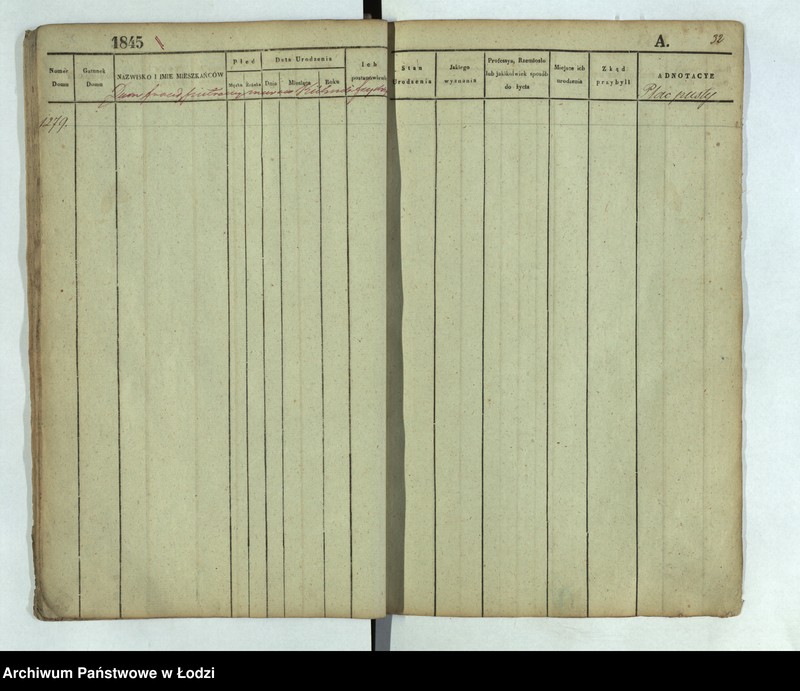 1845
A.
32
Numer Domu
Gatunek Domu
NAZWISKO I IMIE MIESZKAŃCÓW
Płeć
Męska
Data Urodzenia
Dnia
Miesiąca
Roku
Ich
Stan Urodzenia
Jakiego wyznania
Professya, Rzemiosło lub jakikolwiek sposób do życia
Miejsce ich urodzenia
Zkąd przybyli
ADNOTACYE
Dom
Plac pusty
1279.
Archiwum Państwowe w Łodzi